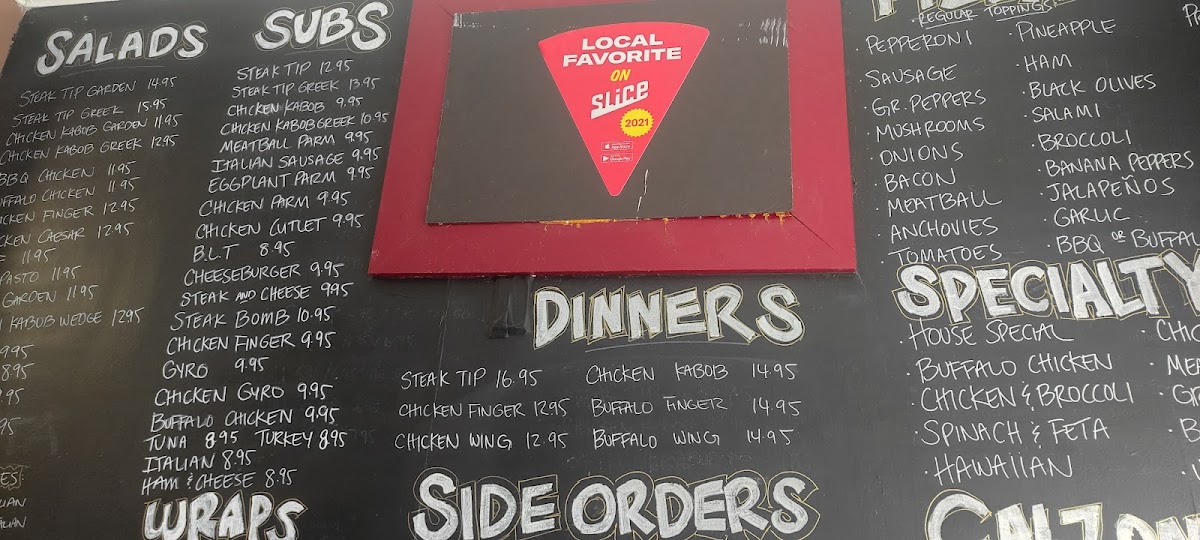 SALADS
STEAK TIP GARDEN 14.95
STEAK TIP GREEK 15.95
CHICKEN KABOB GARDEN 11.95
CHICKEN KABOB GREEK 12.95
BBQ CHICKEN 11.95
BUFFALO CHICKEN 11.95
CHICKEN FINGER 12.95
CHICKEN CAESAR 12.95
11.95
PASTO 11.95
GARDEN 11.95
KABOB WEDGE 12.95
9.95
8.95
9.95
95
SUBS
STEAK TIP 12.95
STEAK TIP GREEK 13.95
CHICKEN KABOB 9.95
CHICKEN KABOB GREEK 10.95
MEATBALL PARM 9.95
ITALIAN SAUSAGE 9.95
EGGPLANT PARM 9.95
CHICKEN PARM 9.95
CHICKEN CUTLET 9.95
B.L.T 8.95
CHEESEBURGER 9.95
STEAK AND CHEESE 9.95
STEAK BOMB 10.95
CHICKEN FINGER 9.95
GYRO 9.95
CHICKEN GYRO 9.95
BUFFALO CHICKEN 9.95
TUNA 8.95 TURKEY 8.95
ITALIAN 8.95
HAM & CHEESE 8.95
WRAPS
LOCAL
FAVORITE
ON
SLICE
2021
App Store
Google Play
DINNERS
STEAK TIP 16.95 CHICKEN KABOB 14.95
CHICKEN FINGER 12.95 BUFFALO FINGER 14.95
CHICKEN WING 12.95 BUFFALO WING 14.95
SIDE ORDERS
REGULAR TOPPINGS:
· PEPPERONI
· SAUSAGE
· GR. PEPPERS
· MUSHROOMS
· ONIONS
· BACON
· MEATBALL
· ANCHOVIES
· TOMATOES
· PINEAPPLE
· HAM
· BLACK OLIVES
· SALAMI
· BROCCOLI
· BANANA PEPPERS
· JALAPEÑOS
· GARLIC
· BBQ OR BUFFAL
SPECIALTY
· HOUSE SPECIAL
· BUFFALO CHICKEN
· CHICKEN & BROCCOLI
· SPINACH & FETA
· HAWAIIAN
· CHIC
· ME
· G
· B
CALZON